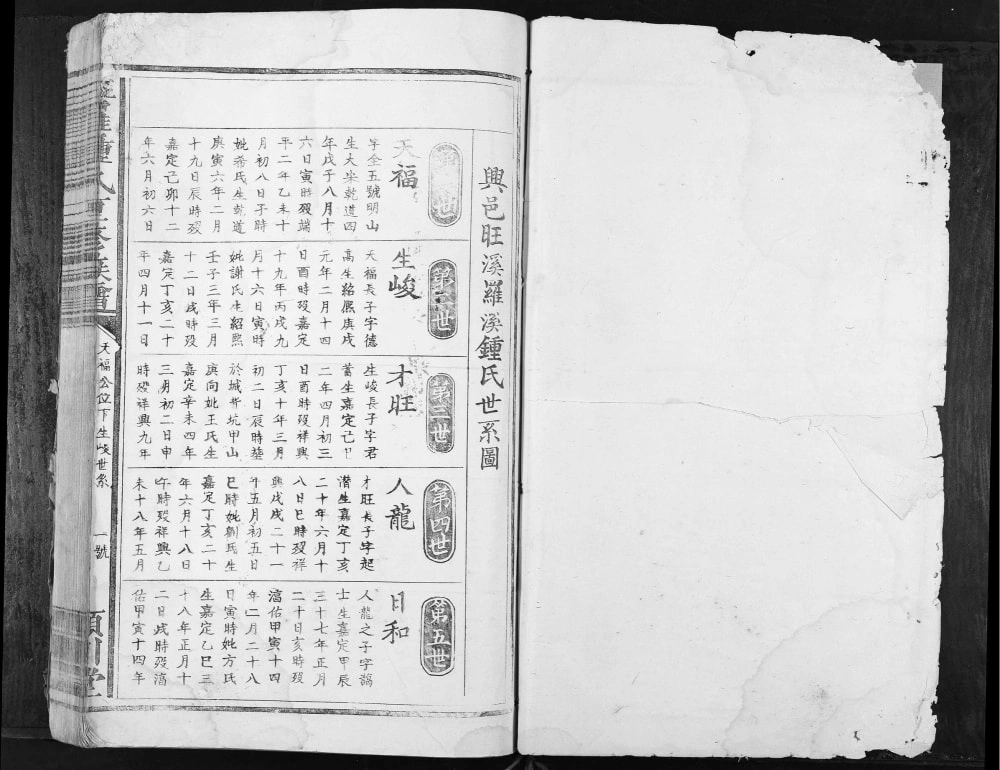 興邑旺溪羅溪鍾氏世系圖
天福
字全五號明山
生大宋乾道四
年戊子八月十
六日寅時歿端
平二年乙未十
月初八日子時
妣希氏生乾道
庚寅六年二月
十九日辰時歿
嘉定己卯十二
年六月初六日
第二世
生峻
天福長子字德
高生紹熙庚戌
元年二月十四
日酉時歿嘉定
十九年丙戌九
月十六日寅時
妣謝氏生紹熙
壬子三年三月
十二日戌時歿
嘉定丁亥二十
年四月十一日
第三世
才旺
生峻長子字君
蓄生嘉定己卩
二年四月初三
日酉時歿祥興
丁亥十年三月
初二日辰時塟
於城背坑甲山
庚向妣王氏生
嘉定辛未四年
三月初二日申
時歿祥興九年
第四世
人龍
才旺長子字起
潛生嘉定丁亥
二十年六月十
八日巳時歿祥
興戊戌二十一
年五月初五日
巳時妣劉氏生
嘉定丁亥二十
年六月十八日
午時歿祥興乙
未十八年五月
第五世
日和
人龍之子字謁
士生嘉定甲辰
三十七年正月
二十日亥時歿
淯佑甲寅十四
年二月二十八
日寅時妣方氏
生嘉定乙巳三
十八年正月十
二日戌時歿淯
佑甲寅十四年
鍾氏重修族譜
天福公位下生峻世系
一號
潁川堂